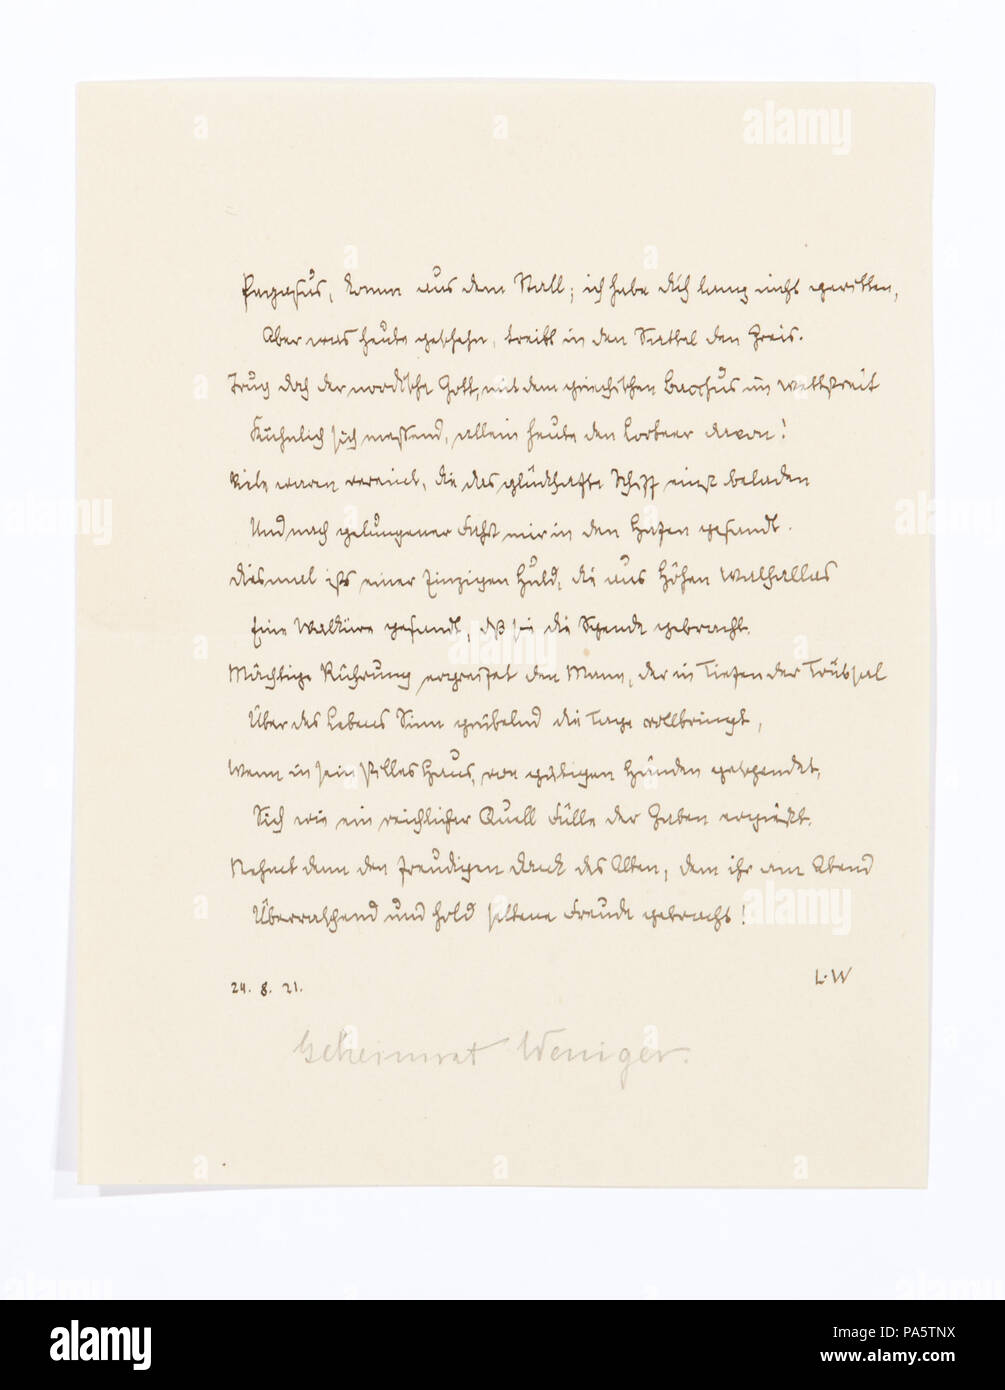 Pegasus, komm aus dem Stall; ich habe dich lang nicht geritten,
Aber was heute geschehn, treibt in den Sattel den Greis.
Trug doch der nordische Gott, mit dem griechischen Bacchus im Wettstreit
Kühnlich sich messend, allein heute den Lorbeer davon!
Viele waren vereint, die das glückhafte Schiff einst beladen
Und nach gelungener Fahrt mir in den Hafen gesandt.
Diesmal ists einer Einzigen Huld, die aus Höhen Walhallas
Eine Walküre gesandt, dß sie die Spende gebracht.
Mächtige Rührung ergreifet den Mann, der in Tiefen der Trübsal
Über des Lebens Sinn grübelnd die Tage vollbringt,
Wenn in sein stilles Haus, von gütigen Händen gespendet,
Sich wie ein reichlicher Quell Fülle der Gaben ergießt.
Nehmet denn den freudigen Dank des Alten, dem ihr am Abend
Überraschend und hold seltene Freude gebracht!
24. 8. 21.
L.W
Geheimrat Weniger.
alamy
alamy
alamy
alamy
alamy
alamy
alamy
alamy
Image ID: PA5TNX
www.alamy.com